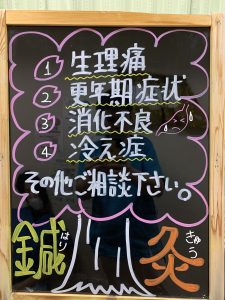 ① 生理痛
② 更年期症状
③ 消化不良
④ 冷え症
その他ご相談下さい。
鍼 はり
灸 きゅう